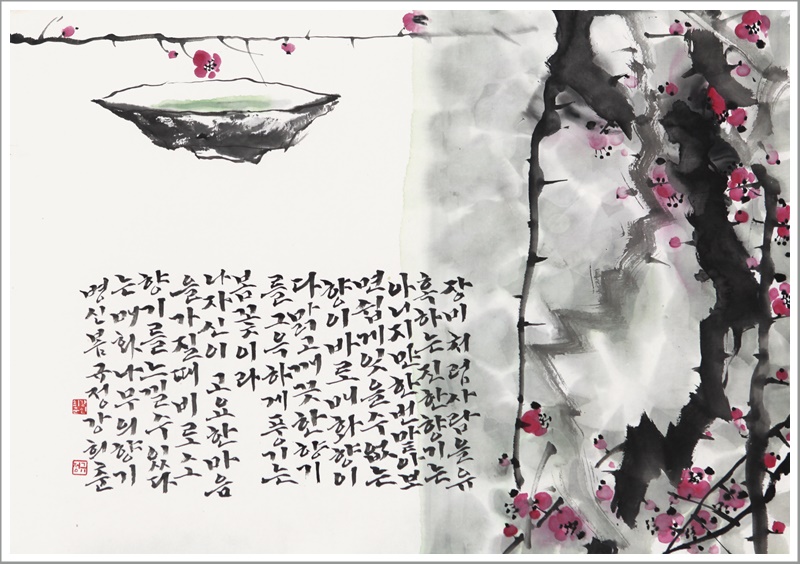 장미처럼사람을유
혹하는진한향기는
아니지만한번맡아보
면쉽게잊을수없는
향이바로매화향이
다맑고깨끗한향기
를그윽하게풍기는
봄꽃이라
나자신이고요한마음
을가질때비로소
향기를느낄수있다
는매화나무의향기
병신봄국정강희준